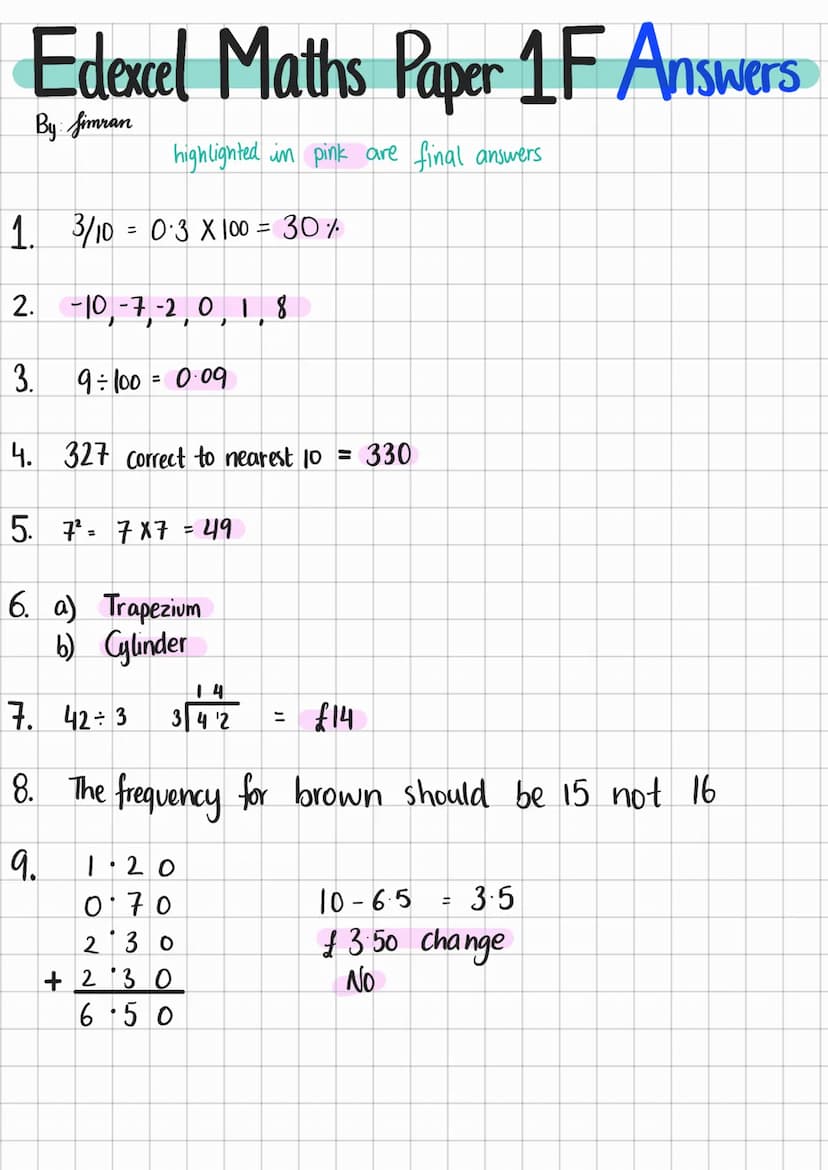 Edexcel Maths Paper 1F Answers
By: Simran
highlighted in pink are final answers
1. 3/10 = 0·3 X 100 = 30%
2. -10, -7, -2, 0, 1, 8
3. 9÷100 = 0·09
4. 327 correct to nearest 10 = 330
5. 7² = 7 X 7 = 49
6. a) Trapezium
b) Cylinder
14
7. 42÷3 3 4 ¹2 = £14
8. The frequency for brown should be 15 not 16
9. 1·20
0·70
2·30
+ 2·30
6·50
10 - 6·5 = 3·5
£3·50 change
No